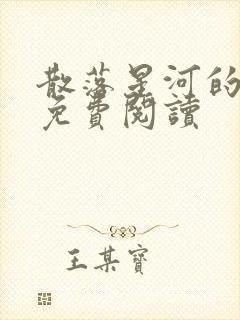 散落星河的
免費閱讀
王某寶